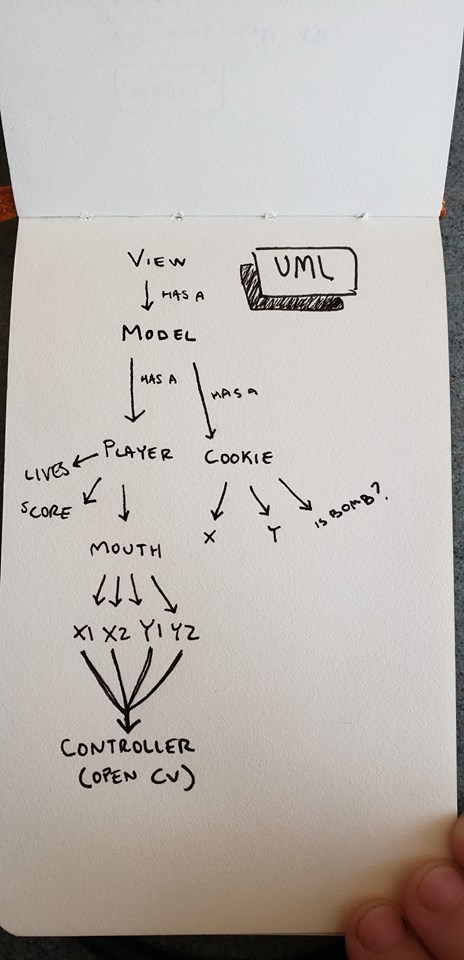 VIEW
UML
HAS A
MODEL
HAS A
HAS A
PLAYER
COOKIE
LIVES
SCORE
X
Y
IS BOMB?
MOUTH
X1 X2 Y1 Y2
CONTROLLER
(OPEN CV)